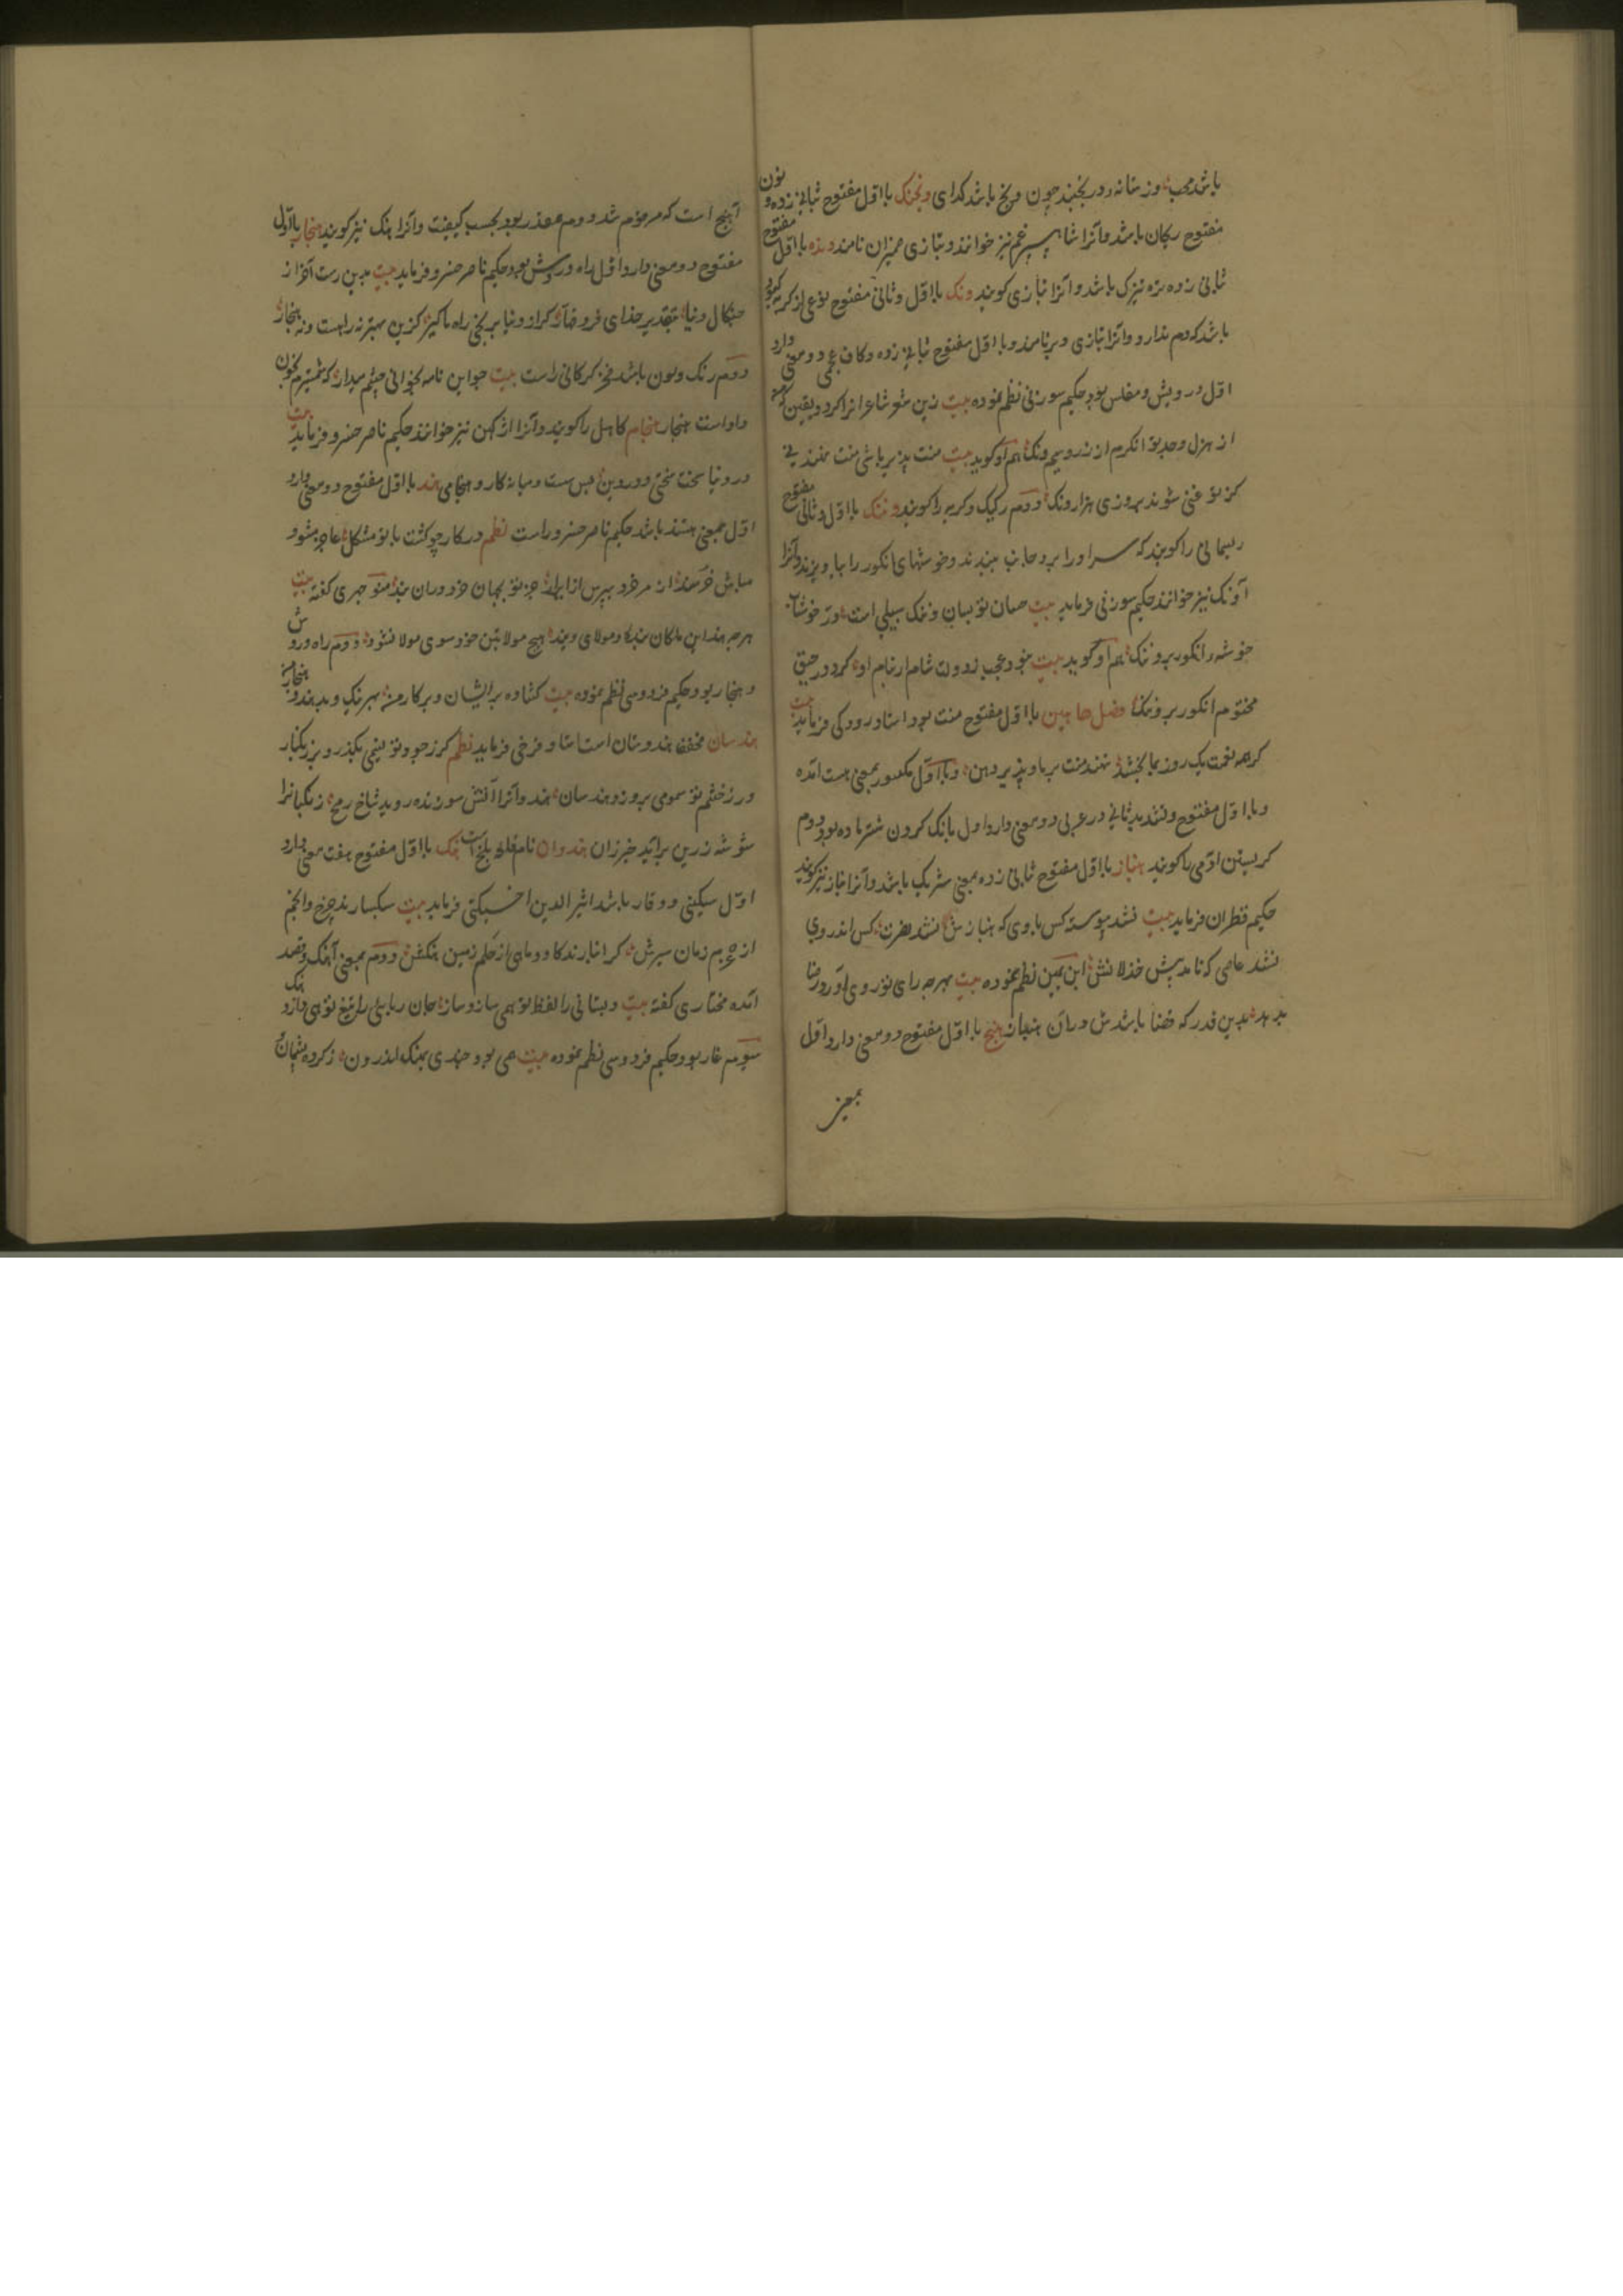 باشد محب وزستانه و در بخبند چون ونج باشد کدای ونجنک با اول مفتوح بثانی زده و نون
مفتوح ریحان باشد و آنرا شاه سپرغم نیز خوانند و بتازی ضمیران نامند ونده با اول
ثانی زده بزه نیزک باشد و آنرا بتازی کویند ونک با اول و ثانی مفتوح نوعی از کربه کبود
باشد که دم ندارد و آنرا بتازی وبر نامند و با اول مفتوح بثانی زده و کاف عجمی دو معنی دارد
اول درویش و مفلس بود حکیم سوزنی نظم نموده بیت زین شعر شاعرانرا کرد و یقین که
از هزل و جد تو انکرم از زر و سیم ونک هم او کوید بیت منت پذیر باشی منت نهند نی
کز تو غنی شوند بروزی هزار ونک دوم رکیک و کریه را کویند وننک با اول و ثانی مفتوح
ریسمانی را کویند که سر او را بر دو جانب ببندند و خوشهای انکور را بیاویزند و آنرا
آونک نیز خوانند حکیم سوزنی فرماید بیت میان تو بسان ونک سیلی است درخوشان
خوشه انکور بر وننک هم او کوید بیت نبود عجب ز دولت شام ار بنام او کردد رحیق
مختوم انکور بر وننک فصل ها بین با اول مفتوح منت بود استاد رودکی فرماید بیت
کر همه نعمت یک روز بما بخشد نهند منت بر ما و پذیرد هن و با اول مکسور بمعنی هست آمده
و با اول مفتوح و تشدید ثانی در عربی دو معنی دارد اول بانک کردن شتر ماده بود دوم
کریستن آدمی را کویند هنباز با اول مفتوح ثانی زده بمعنی شریک باشد و آنرا انباز نیز کویند
حکیم قطران فرماید بیت نشد پیوسته کس با وی که هنبازش نشد نصرت کس اندر وی
نشد عاصی که نامد پیش خذلانش ابن یمین نظم نموده بیت بهرچه رای تو روی آورد رضا
بدهد بدین قدر که قضا باشدش در آن هنباز هنج با اول مفتوح دو معنی دارد اول
بمعنی
آهنج است که مرقوم شد دوم عمد ربود بحسب کیفیت و آنرا هنک نیز کویند هنجار با اول
مفتوح دو معنی دارد اول راه و روش بود حکیم ناصر خسرو فرماید بیت بدین رست آخر از
چنکال دنیا بتقدیر خدای فرد قهار کر از دنیا برنجی راه ما کیر کزین بهتر نه راهست و نه هنجار
دوم رنک و لون باشد فخر کرکانی راست بیت چو این نامه بخوانی چشم میدار که شمشیرم بخون
داد است هنجار هنجام کاهل را کویند و آنرا اژکهن نیز خوانند حکیم ناصر خسرو فرماید بیت
در دنیا سخت سختی و در دین بس سست و میانه کار و هنجامی هند با اول مفتوح دو معنی دارد
اول بمعنی هستند باشد حکیم ناصر خسرو راست نظم در کار چو کشت با تو مشکل عاجز مشو و
مباش خرسند از مرد خرد بپرس ازیراک جز تو بجهان خردوران هند منوچهری کفته بیت
هرچه هند این ملکان بنده و مولای ویند هیچ مولا بتن خود سوی مولا نشود دوم راه و روش
و هنجار بود حکیم فردوسی نظم نموده بیت کشاده بر ایشان و بر کار من بهر نیک و بد هند و هنجار من
هندسان مخفف هندوستان است استاد فرخی فرماید نظم کر زجود تو نسیمی بکذرد بر زنکبار
ور زخشم تو سمومی بروزد هندسان هند و آنرا آتش سوزنده روید شاخ رمح زنکیانرا
شوشه زرین برآید خیزران هندوان نام قلعه بلخ است هنک با اول مفتوح هفت معنی دارد
اول سنکینی و وقار باشد اثیر الدین اخسیکتی فرماید بیت سبکسارند چرخ و انجم
از چه بهم زمان سیرش کرانبارند کاو و ماهی از حلم زمین هنکش دوم بمعنی آهنک و قصد
آمده مختاری کفته بیت دبستانی را لفظ تو همی سازد ساز جان ربایی را تیغ تو همی دارد هنک
سوم غار بود حکیم فردوسی نظم نموده بیت همی بود چندی بهنک اندرون ز کرده پشیمان